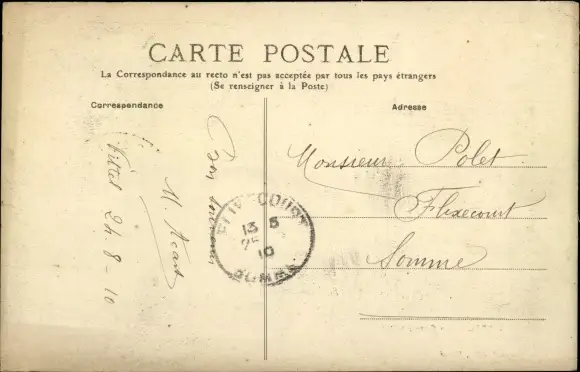 CARTE POSTALE
La Correspondance au recto n'est pas acceptée par tous les pays étrangers
(Se renseigner à la Poste)
Correspondance
Adresse
Bon
M. Acart
Vittel 24-8-10
Monsieur Polet
Flixecourt
Somme
FLIXECOURT
13 5
25
10
SOMME